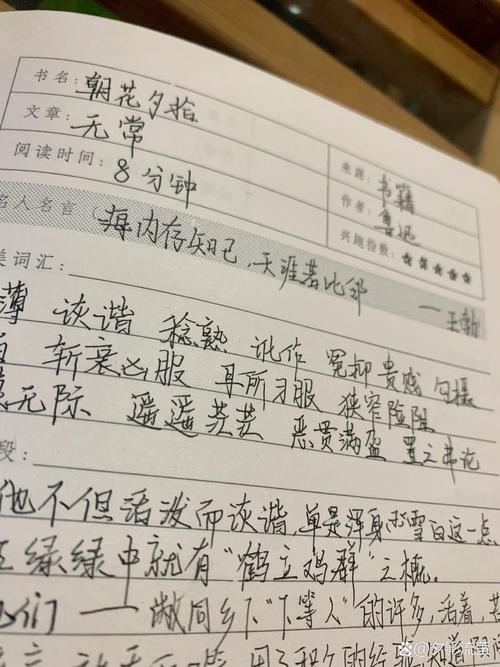 书名: 朝花夕拾
文章: 无常
阅读时间: 8分钟
来源: 书籍
作者: 鲁迅
兴趣指数: ★★★★★
名人名言 (海内存知己,天涯若比邻
——王勃
美词汇:
薄 诙谐 稔熟 讹作 冤抑 贵贱 勾摄
斩衰凶服 耳所习服 狭窄险阻
无际 遥遥茫茫 恶贯满盈 置之弗论
段:
他不但活泼而诙谐,单是浑身雪白这一点
红绿绿中就有“鹤立鸡群”之概.
他们——敝同乡“下等人”的许多,活着,苦